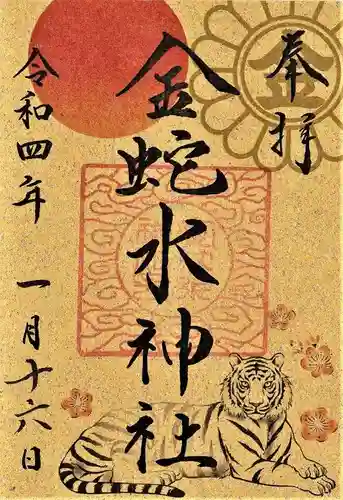 奉拝
金
金蛇水神社
令和四年 一月十六日